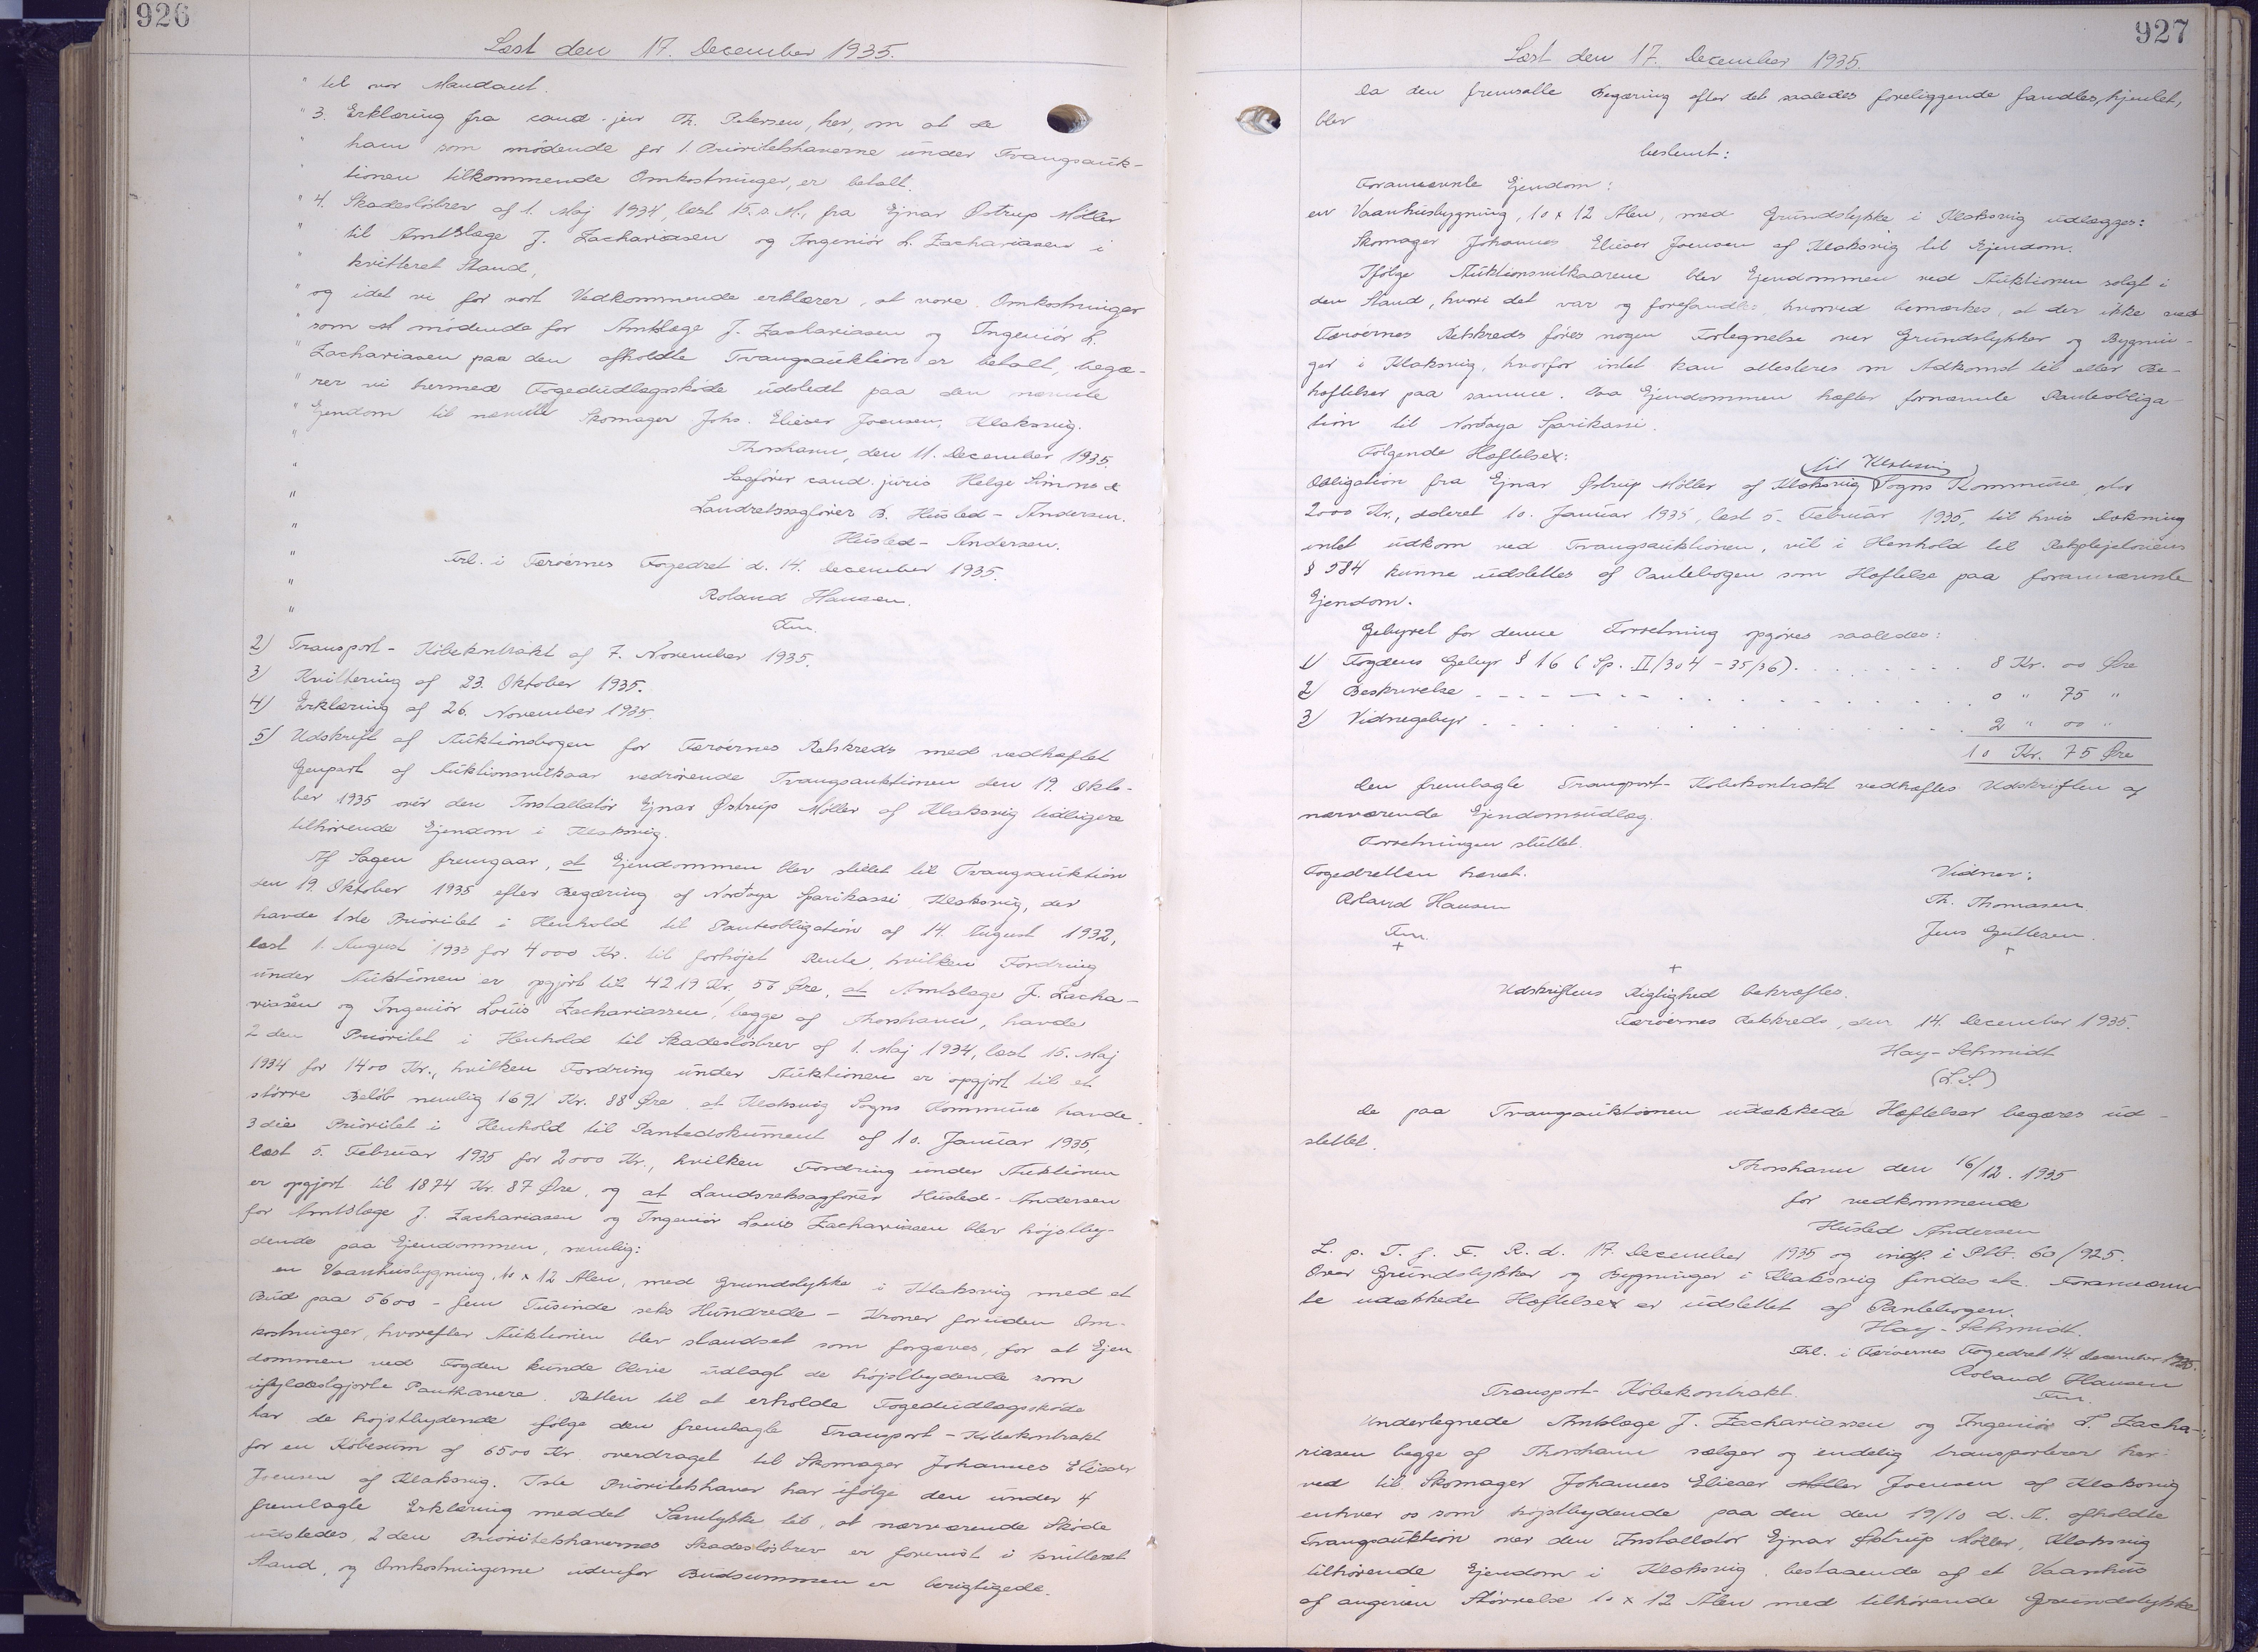 926
Læst den 17. December 1935.
" til vor Mandant.
" 3. Erklæring fra cand. jur Th. Petersen, her, om at de
" ham som mødende for 1. Prioritetshaverne under Tvangsauk-
" tionen tilkommende Omkostninger, er betalt.
" 4. Skadesløsbrev af 1. Maj 1934, læst 15. s. M., fra Ejnar Østrup Møller
" til Amtslæge J. Zachariasen og Ingeniør L. Zachariasen i
" kvitteret Stand,
" og idet vi for vort Vedkommende erklærer, at vore Omkostninger
" som mødende for Amtslæge J. Zachariasen og Ingeniør L.
" Zachariasen paa den afholdte Tvangsauktion er betalt, begæ-
" rer vi hermed Fogedudlægsskøde udstedt paa den nævnte
" Ejendom til nævnte Skomager Johs. Elieser Joensen, Klaksvig.
" Thorshavn, den 11. December 1935.
" Sagfører cand. juris Helge Simons &
" Landretssagfører B. Husted-Andersen.
" Husted-Andersen.
" Frl. i Færøernes Fogedret d. 14. December 1935.
" Roland Hansen.
" Fm.
2) Transport-Købekntrakt af 7. November 1935.
3) Kvittering af 23. Oktober 1935.
4) Erklæring af 26. November 1935.
5) Udskrift af Auktionsbogen for Færøernes Retskreds med vedhæftet
Genpart af Auktionsvilkaar vedrørende Tvangsauktionen den 19. Okto-
ber 1935 over den Installatør Ejnar Østrup Møller af Klaksvig tidligere
tilhørende Ejendom i Klaksvig.
Af Sagen fremgaar, at Ejendommen blev stillet til Tvangsauktion
den 19. Oktober 1935 efter Begæring af Norðoya Sparikassi Klaksvig, der
havde 1ste Prioritet i Henhold til Panteobligation af 14. August 1932,
læst 1. August 1933 for 4000 Kr. til forhøjet Rente, hvilken Fordring
under Auktionen er opgjort til 4219 Kr. 56 Øre, at Amtslæge J. Zacha-
riasen og Ingeniør Louis Zachariassen, begge af Thorshavn, havde
2den Prioritet i Henhold til Skadesløsbrev af 1. Maj 1934, læst 15. Maj
1934 for 1400 Kr., hvilken Fordring under Auktionen er opgjort til et
større Beløb nemlig 1691 Kr. 88 Øre, at Klaksvig Sogns Kommune havde
3die Prioritet i Henhold til Pantedokument af 10. Januar 1935,
læst 5. Februar 1935 for 2000 Kr., hvilken Fordring under Auktionen
er opgjort til 1874 Kr. 87 Øre, og at Landsretssagfører Husted-Andersen
for Amtslæge J. Zachariasen og Ingeniør Louis Zachariasen blev højstby-
dende paa Ejendommen, nemlig:
en Vaanhusbygning, 10 x 12 Alen, med Grundstykke i Klaksvig med et
Bud paa 5600 - fem Tusinde seks Hundrede - Kroner foruden Om-
kostninger, hvorefter Auktionen blev standset som forgæves, for at Ejen
dommen ved Fogden kunde blive udlagt de højstbydende som
ufyldestgjorte Panthavere. Retten til at erholde Fogedudlægsskøde
har de højstbydende ifølge den fremlagte Transport-Købekontrakt
for en Købesum af 6500 Kr. overdraget til Skomager Johannes Elieser
Joensen af Klaksvig. 1ste Prioritetshaver har ifølge den under 4
fremlagte Erklæring meddelt Samtykke til, at nærværende Skøde
udstedes, 2den Prioritetshavernes Skadesløsbrev er forevist i kvitteret
Stand, og Omkostningerne udenfor Budsummen er berigtigede.
927
Læst den 17. December 1935.
Da den fremsatte Begæring efter det saaledes foreliggende fandtes hjemlet,
blev
bestemt:
Forannævnte Ejendom:
en Vaanhusbygning, 10 x 12 Alen, med Grundstykke i Klaksvig udlægges:
Skomager Johannes Elieser Joensen af Klaksvig til Ejendom.
Ifølge Auktionsvilkaarene blev Ejendommen ved Auktionen solgt i
den Stand, hvori det var og forefandtes hvorved bemærkes, at der ikke ved
Færøernes Retskreds føres nogen Fortegnelse over Grundstykker og Bygnin-
ger i Klaksvig, hvorfor intet kan attesteres om Adkomst til eller Be-
hæftelser paa samme. Paa Ejendommen hæfter fornævnte Panteobliga-
tion til Norðoya Sparikassi.
Følgende Hæftelse:
(til Klaksvig)
Obligation fra Ejnar Østrup Møller af Klaksvig Sogns Kommune, stor
2000 Kr., dateret 10. Januar 1935, læst 5. Februar 1935, til hvis Dækning
intet udkom ved Tvangsauktionen, vil i Henhold til Retsplejelovens
§ 584 kunne udslettes af Pantebogen som Hæftelse paa forannævnte
Ejendom.
Gebyret for denne Forretning opgøres saaledes:
1) Fogdens Gebyr § 16 (Sp. II/304 - 35/36) . . . . . . 8 Kr. 00 Øre
2) Beskrivelse . . . . . . 0 " 75 "
3) Vidnegebyr . . . . . . 2 " 00 "
10 Kr. 75 Øre
Den fremlagte Transport-Købekontrakt vedhæftes Udskriften af
nærværende Ejendomsudlæg.
Forretningen sluttet.
Fogedretten hævet. Vidner:
Roland Hansen Th. Thomasen.
Fm. Jens Guttesen.
Udskriftens Rigtighed bekræftes.
Færøernes Retskreds, den 14. December 1935.
Hay-Schmidt
(L.S.)
De paa Tvangsauktionen udækkede Hæftelser begæres ud-
slettet.
Thorshavn den 16/12. 1935
for vedkommende
Husted Andersen
L. p. T. f. F. R. d. 17. December 1935 og indf. i Ptb. 60/925.
Over Grundstykker og Bygninger i Klaksvig findes etc. Forannævn
te udækkede Hæftelse er udslettet af Pantebogen.
Hay-Schmidt.
Frl. i Færøernes Fogedret 14. December 1935.
Roland Hansen
Fm.
Transport-Købekontrakt.
Undertegnede Amtslæge J. Zachariassen og Ingeniør L. Zacha-
riasen begge af Thorshavn sælger og endelig transporterer her-
ved til Skomager Johannes Elieser Joensen af Klaksvig
enhver os som højstbydende paa den den 19/10 d. A. afholdte
Tvangsauktion over den Installatør Ejnar Østrup Møller, Klaksvig
tilhørende Ejendom i Klaksvig, bestaaende af et Vaanhus
af angiven Størrelse 10 x 12 Alen med tilhørende Grundstykke